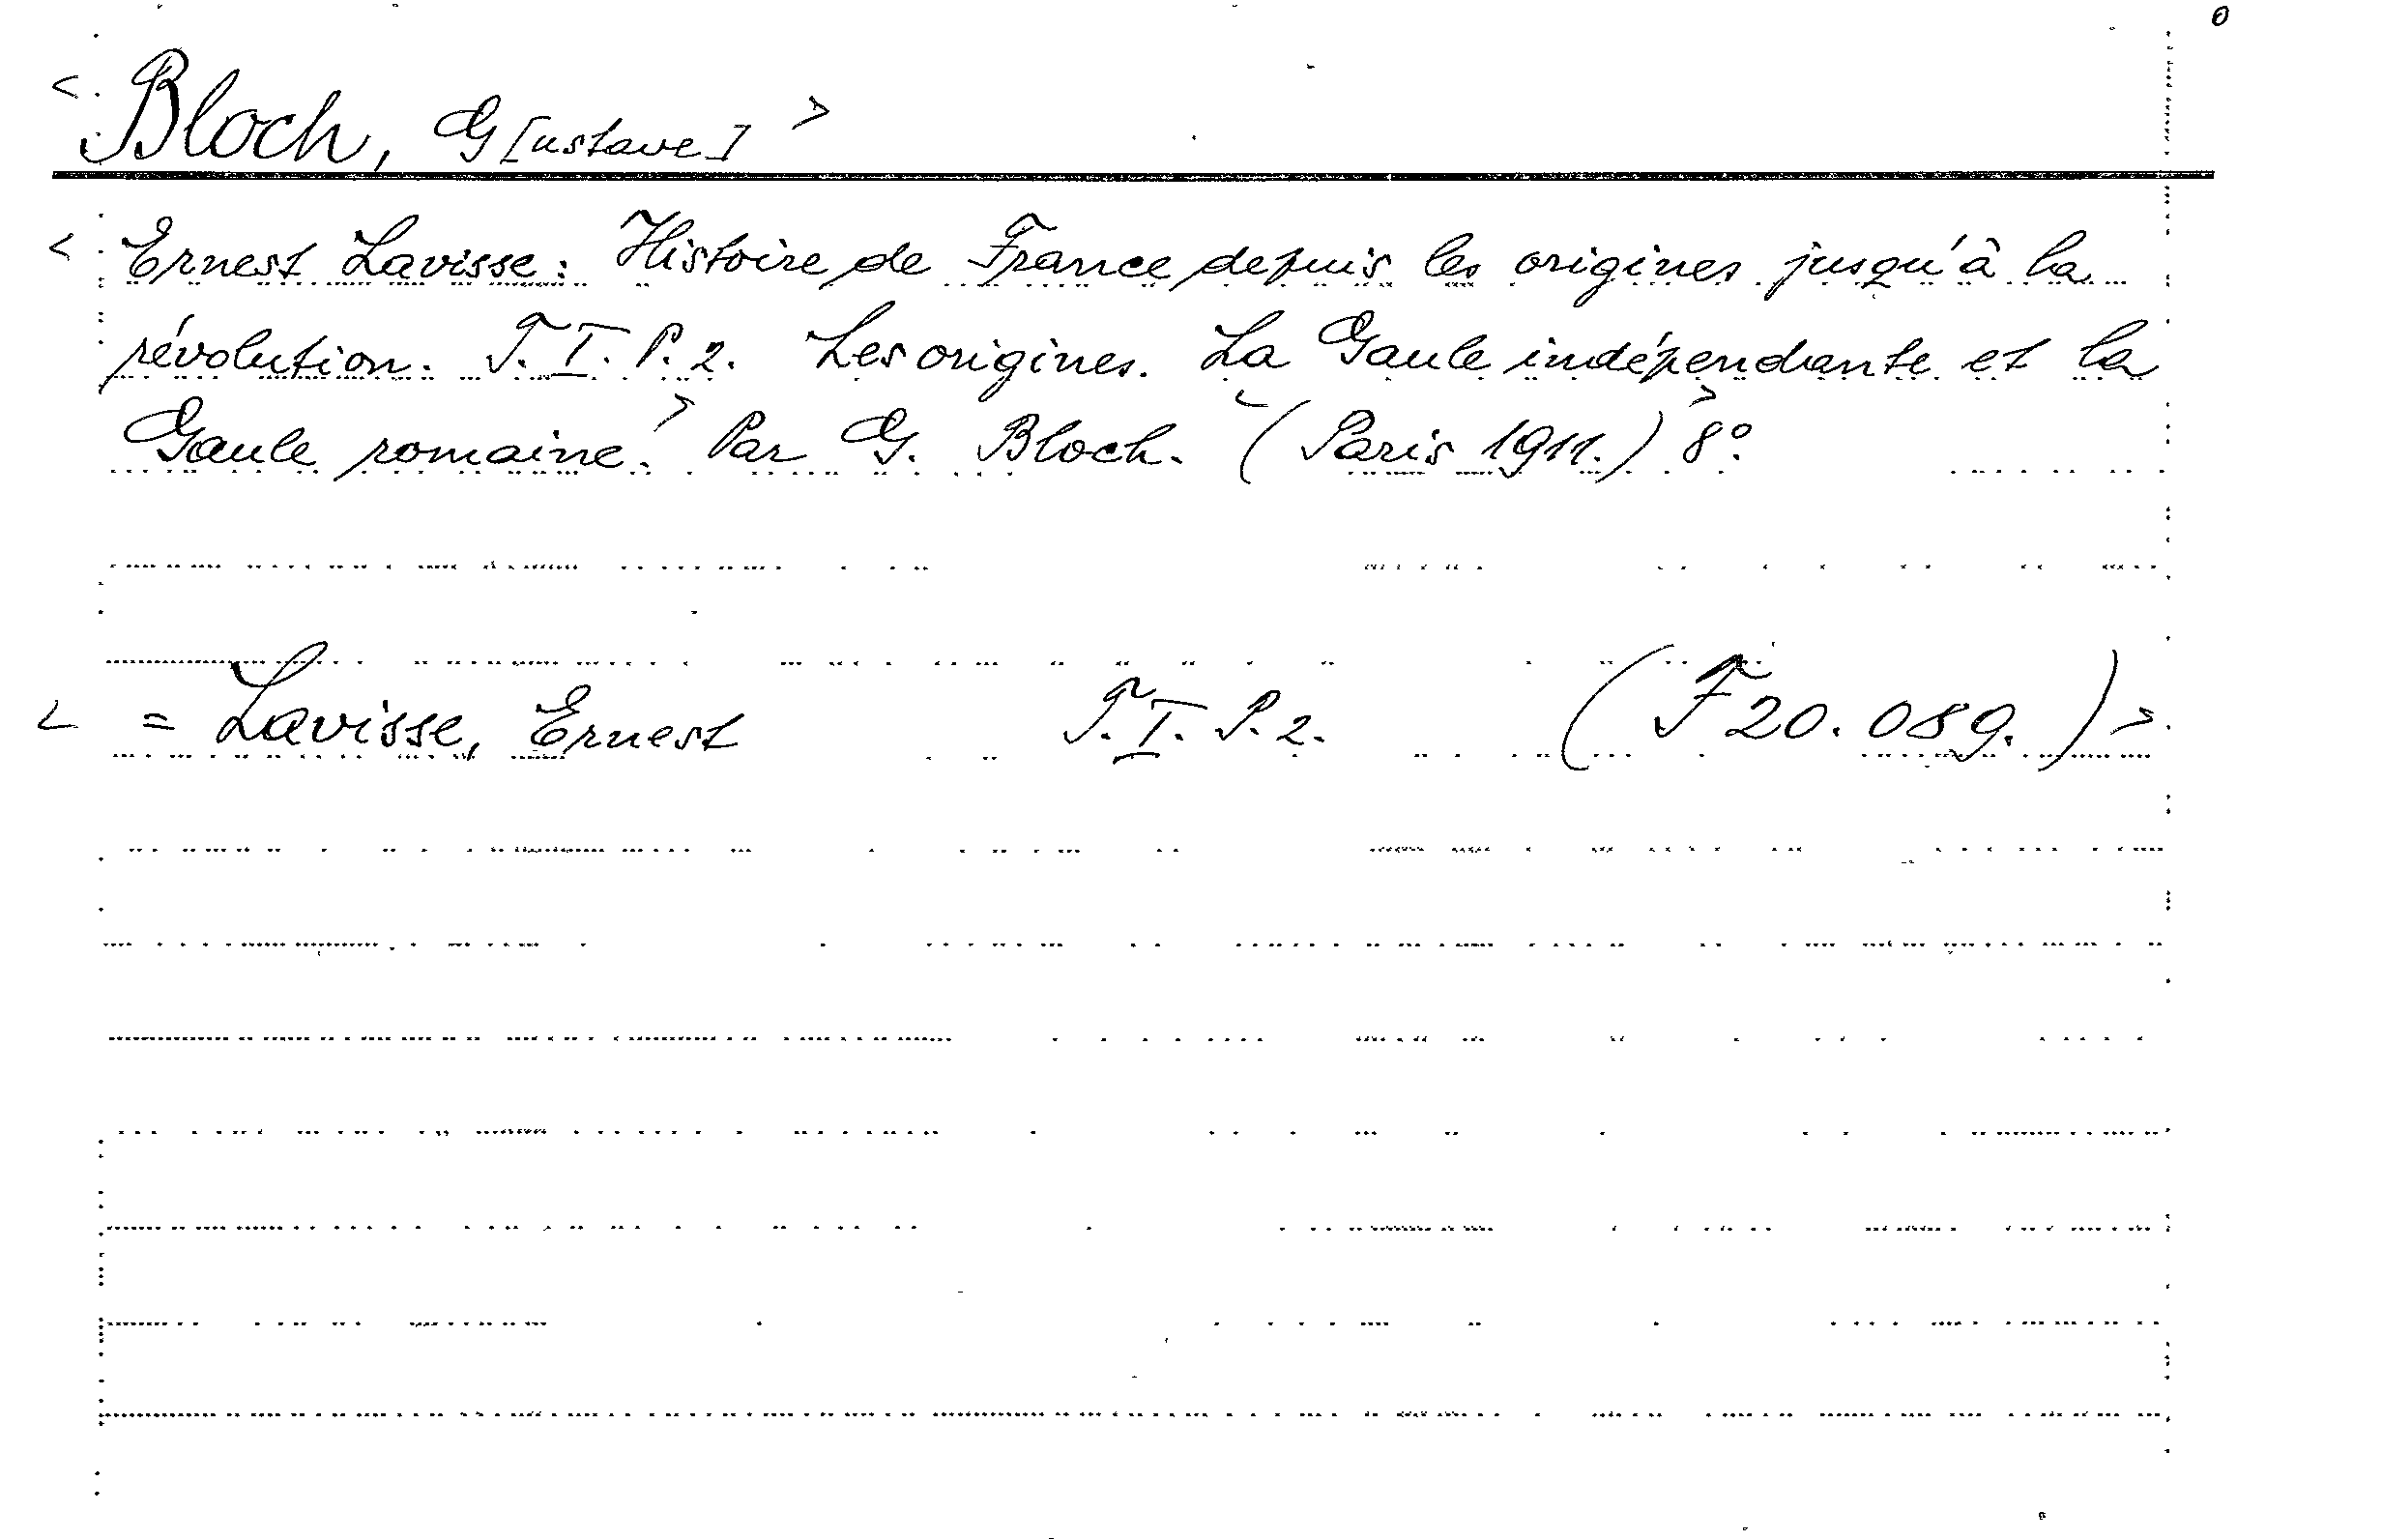 < Bloch, G[ustave] >
< Ernest Lavisse: Histoire de France depuis les origines jusqu'à la
révolution. T. I. P. 2. Les origines. La Gaule indépendante et la
Gaule romaine.> Par G. Bloch. <(Paris 1911.)> 8°.
< = Lavisse, Ernest T. I. P. 2. (F 20.089.) >